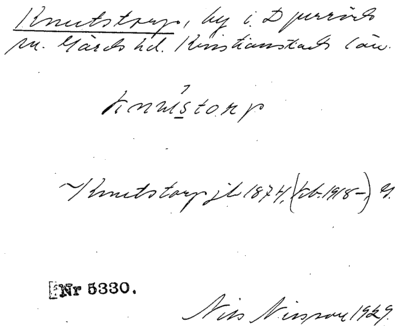 Knutstorp, by i Djurröds
sn. Gärds hd. Kristianstads län.
knu̇storp
Knutstorp jb 1874, (kb. 1918–)
Nr 5330.
Nils Nilsson 1929.